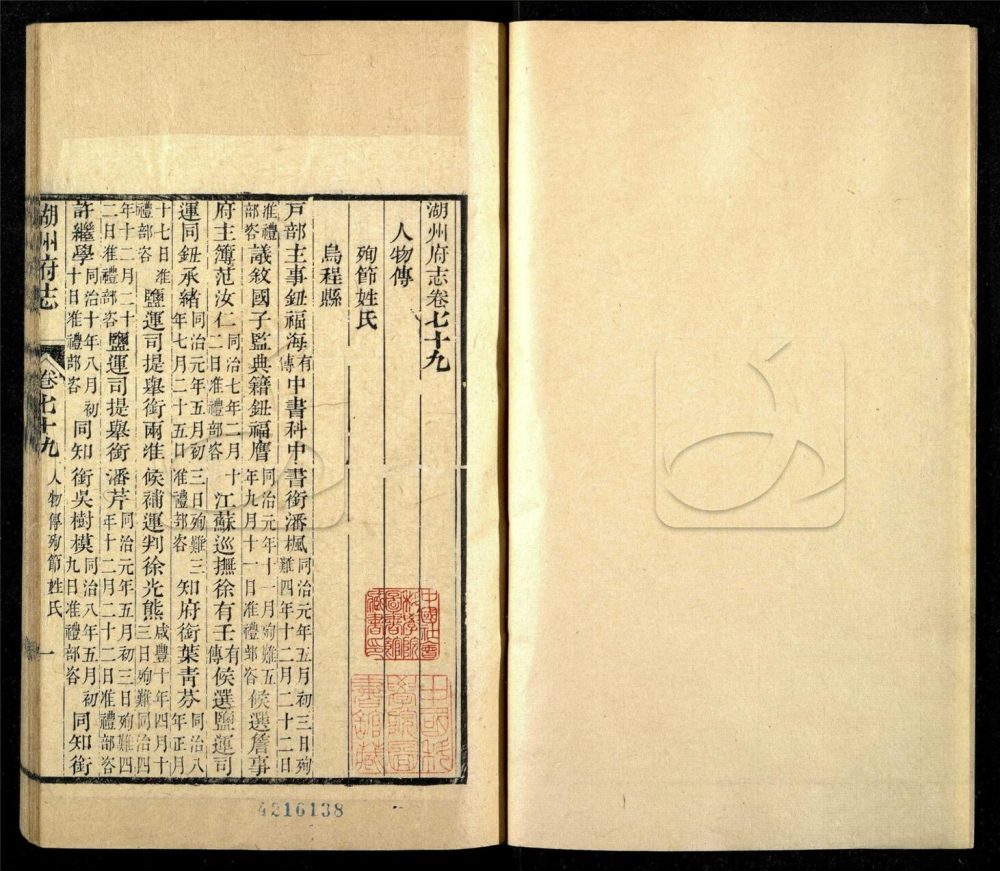 湖州府志卷七十九
人物傳
殉節姓氏
烏程縣
戶部主事鈕福海有傳中書科中書銜潘楓同治元年五月初三日殉難四年十二月二十二日
准禮部咨議敘國子監典籍鈕福膺同治元年十一月殉難五年九月十一日准禮部咨候選詹事
府主簿范汝仁同治七年二月十二日准禮部咨江蘇巡撫徐有壬有傳候選鹽運司
運同鈕承緒同治元年五月初三日殉難三年七月二十五日准禮部咨知府銜葉青芬同治八年正月
十七日准禮部咨鹽運司提舉銜兩淮候補運判徐光熊咸豐十年四月十三日殉難同治四
年十二月二十二日准禮部咨鹽運司提舉銜潘芹同治元年五月初三日殉難四年十二月二十二日准禮部咨
許繼學同治十年八月初十日准禮部咨同知銜吳樹模同治八年五月初九日准禮部咨同知銜
湖州府志 卷七十九 人物傳殉節姓氏 一
中國社會科學院圖書館藏書印
中國科學院圖書館藏
4216138